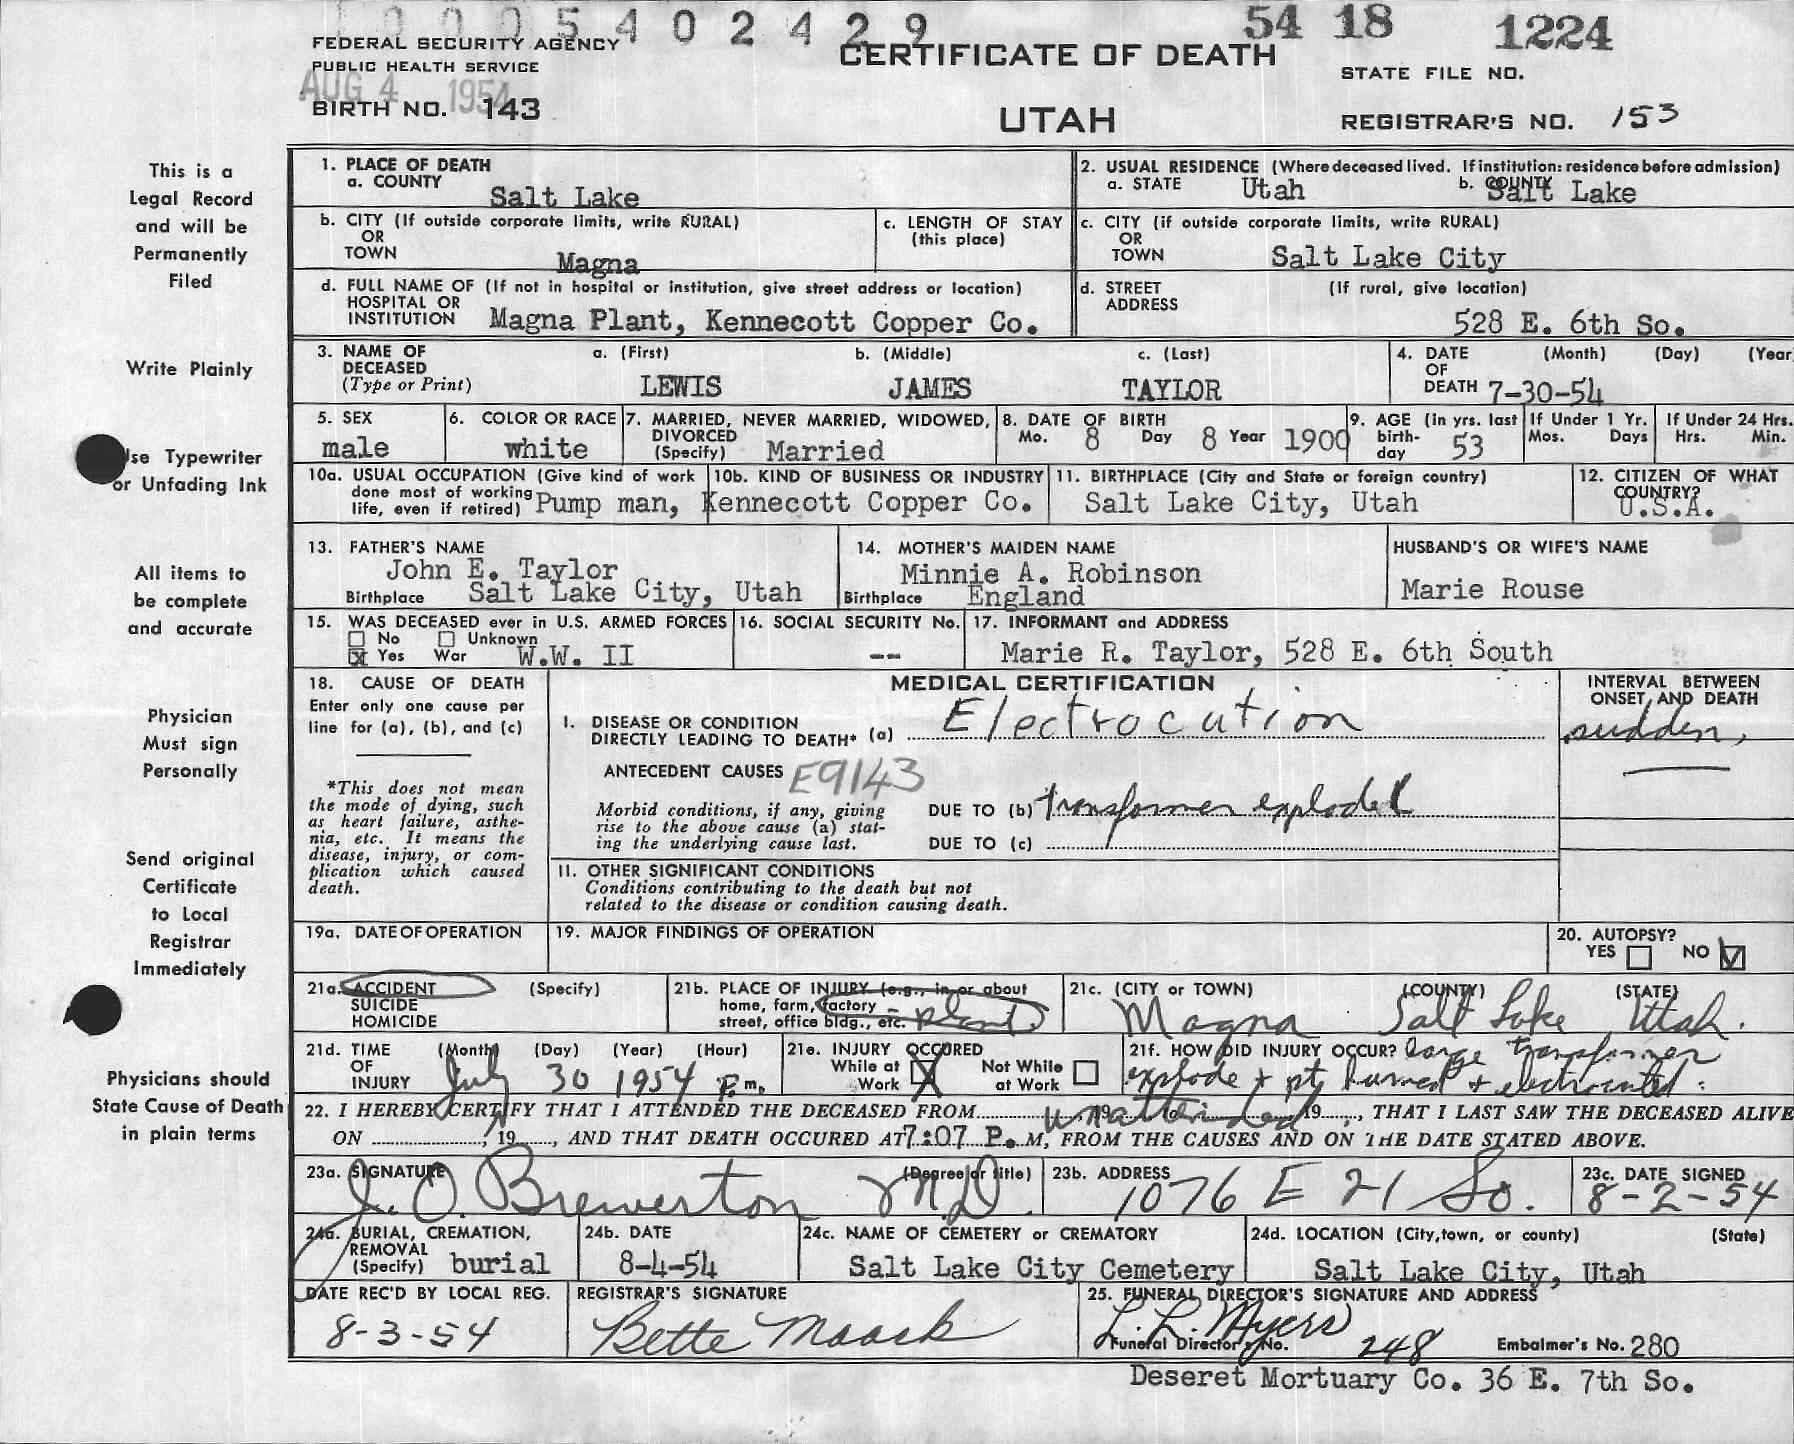 1 0 0 0 5 4 0 2 4 2 9
54 18 1224
FEDERAL SECURITY AGENCY
PUBLIC HEALTH SERVICE
AUG 4 1954
BIRTH NO. 143
CERTIFICATE OF DEATH
UTAH
STATE FILE NO.
REGISTRAR'S NO. 153
This is a
Legal Record
and will be
Permanently
Filed
Write Plainly
Use Typewriter
or Unfading Ink
All items to
be complete
and accurate
Physician
Must sign
Personally
Send original
Certificate
to Local
Registrar
Immediately
Physicians should
State Cause of Death
in plain terms
1. PLACE OF DEATH
a. COUNTY Salt Lake
2. USUAL RESIDENCE (Where deceased lived. If institution: residence before admission)
a. STATE Utah b. COUNTY Salt Lake
b. CITY (If outside corporate limits, write RURAL)
OR
TOWN Magna
c. LENGTH OF STAY
(this place)
c. CITY (if outside corporate limits, write RURAL)
OR
TOWN Salt Lake City
d. FULL NAME OF (If not in hospital or institution, give street address or location)
HOSPITAL OR
INSTITUTION Magna Plant, Kennecott Copper Co.
d. STREET (If rural, give location)
ADDRESS
528 E. 6th So.
3. NAME OF a. (First) b. (Middle) c. (Last)
DECEASED
(Type or Print) LEWIS JAMES TAYLOR
4. DATE (Month) (Day) (Year
OF
DEATH 7-30-54
5. SEX
male
6. COLOR OR RACE
white
7. MARRIED, NEVER MARRIED, WIDOWED,
DIVORCED
(Specify) Married
8. DATE OF BIRTH
Mo. 8 Day 8 Year 1900
9. AGE (In yrs. last
birth-
day 53
If Under 1 Yr.
Mos. Days
If Under 24 Hrs.
Hrs. Min.
10a. USUAL OCCUPATION (Give kind of work
done most of working
life, even if retired) Pump man,
10b. KIND OF BUSINESS OR INDUSTRY
Kennecott Copper Co.
11. BIRTHPLACE (City and State or foreign country)
Salt Lake City, Utah
12. CITIZEN OF WHAT
COUNTRY?
U.S.A.
13. FATHER'S NAME
John E. Taylor
Birthplace Salt Lake City, Utah
14. MOTHER'S MAIDEN NAME
Minnie A. Robinson
Birthplace England
HUSBAND'S OR WIFE'S NAME
Marie Rouse
15. WAS DECEASED ever in U.S. ARMED FORCES
No Unknown
x Yes War W.W. II
16. SOCIAL SECURITY No.
--
17. INFORMANT and ADDRESS
Marie R. Taylor, 528 E. 6th South
18. CAUSE OF DEATH
Enter only one cause per
line for (a), (b), and (c)
*This does not mean
the mode of dying, such
as heart failure, asthe-
nia, etc. It means the
disease, injury, or com-
plication which caused
death.
MEDICAL CERTIFICATION
I. DISEASE OR CONDITION
DIRECTLY LEADING TO DEATH* (a) Electrocution
ANTECEDENT CAUSES E9143
Morbid conditions, if any, giving
rise to the above cause (a) stat-
ing the underlying cause last.
DUE TO (b) transformer exploded
DUE TO (c)
INTERVAL BETWEEN
ONSET AND DEATH
sudden,
11. OTHER SIGNIFICANT CONDITIONS
Conditions contributing to the death but not
related to the disease or condition causing death.
19a. DATE OF OPERATION
19. MAJOR FINDINGS OF OPERATION
20. AUTOPSY?
YES NO
21a. ACCIDENT (Specify)
SUICIDE
HOMICIDE
21b. PLACE OF INJURY (e.g., in or about
home, farm, factory
street, office bldg., etc. - plant
21c. (CITY or TOWN) (COUNTY) (STATE)
Magna Salt Lake Utah.
21d. TIME (Month) (Day) (Year) (Hour)
OF
INJURY July 30 1954 P.m.
21e. INJURY OCCURED
While at
Work
Not While
at Work
21f. HOW DID INJURY OCCUR? large transformer
explode + pt. burned + electrocuted.
22. I HEREBY CERTIFY THAT I ATTENDED THE DECEASED FROM unattended 19 , 19 , THAT I LAST SAW THE DECEASED ALIVE
ON , 19 , AND THAT DEATH OCCURED AT 7:07 P. M, FROM THE CAUSES AND ON THE DATE STATED ABOVE.
23a. SIGNATURE (Degree or title)
J. O. Brewerton M.D.
23b. ADDRESS
1076 E 21 So.
23c. DATE SIGNED
8-2-54
24a. BURIAL, CREMATION,
REMOVAL
(Specify) burial
24b. DATE
8-4-54
24c. NAME OF CEMETERY or CREMATORY
Salt Lake City Cemetery
24d. LOCATION (City, town, or county) (State)
Salt Lake City, Utah
DATE REC'D BY LOCAL REG.
8-3-54
REGISTRAR'S SIGNATURE
Bette Maack
25. FUNERAL DIRECTOR'S SIGNATURE AND ADDRESS
L. L. Myers
Funeral Director's No. 248 Embalmer's No. 280
Deseret Mortuary Co. 36 E. 7th So.